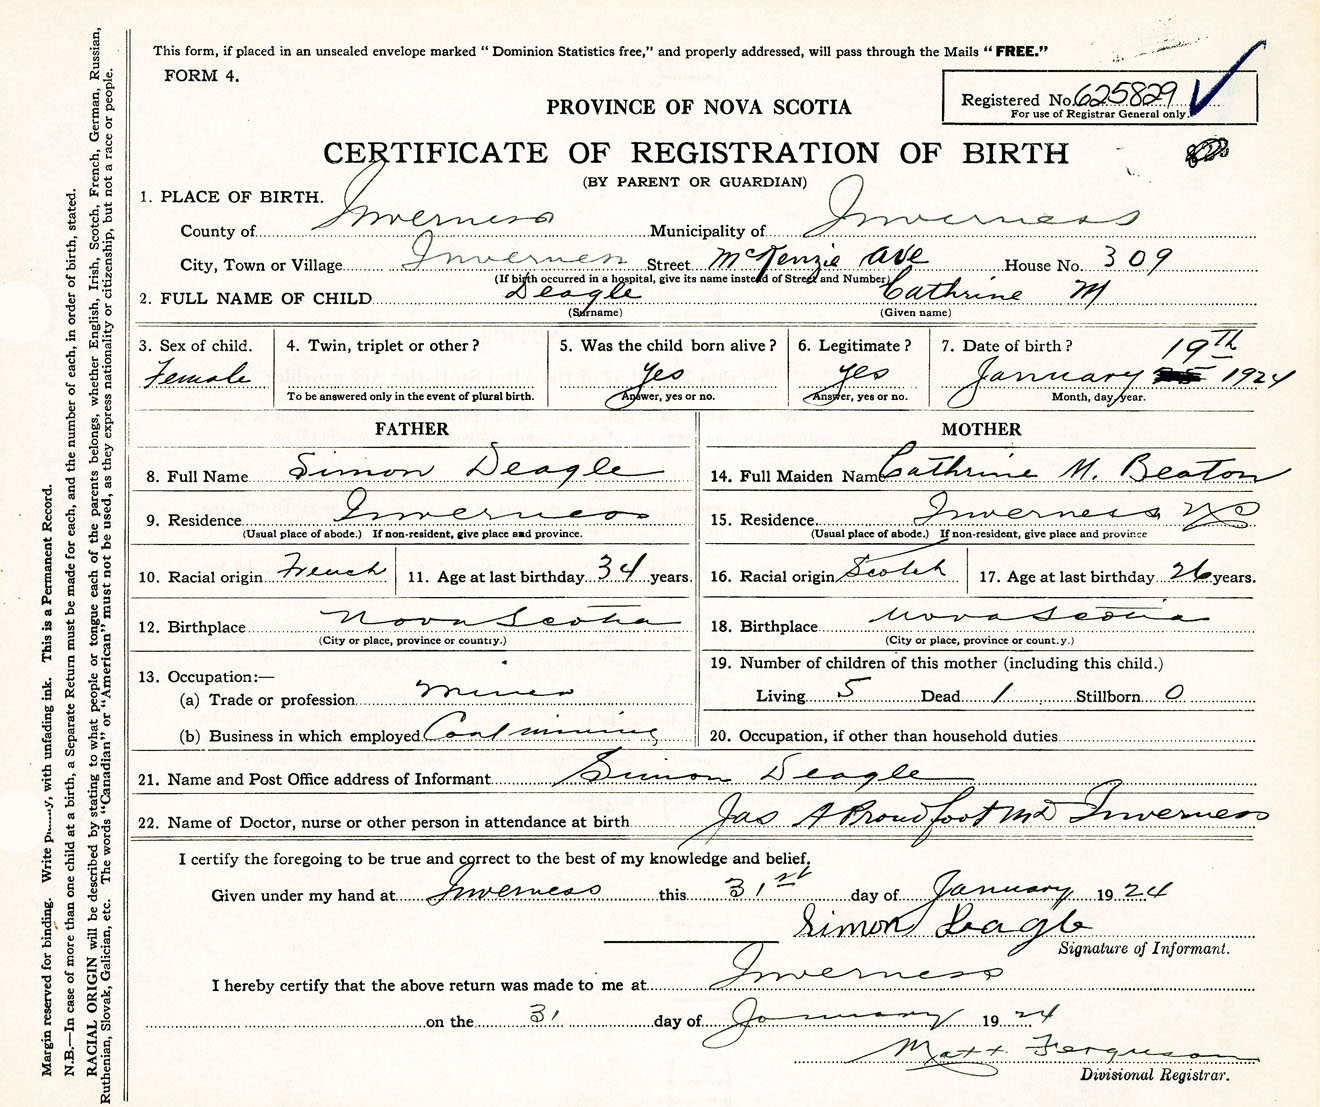 This form, if placed in an unsealed envelope marked "Dominion Statistics free," and properly addressed, will pass through the Mails "FREE."
FORM 4.
Registered No. 625829
For use of Registrar General only.
PROVINCE OF NOVA SCOTIA
CERTIFICATE OF REGISTRATION OF BIRTH
(BY PARENT OR GUARDIAN)
1. PLACE OF BIRTH.
County of Inverness Municipality of Inverness
City, Town or Village Inverness Street McKenzie Ave House No. 309
(If birth occurred in a hospital, give its name instead of Street and Number)
2. FULL NAME OF CHILD Deagle Cathrine M
(Surname) (Given name)
3. Sex of child. Female
4. Twin, triplet or other?
To be answered only in the event of plural birth.
5. Was the child born alive? Yes
Answer, yes or no.
6. Legitimate? Yes
Answer, yes or no.
7. Date of birth? 19th
January 1924
Month, day, year.
FATHER
8. Full Name Simon Deagle
9. Residence Inverness
(Usual place of abode.) If non-resident, give place and province.
10. Racial origin French 11. Age at last birthday 34 years.
12. Birthplace Nova Scotia
(City or place, province or country.)
13. Occupation:—
(a) Trade or profession Miner
(b) Business in which employed Coal mining
MOTHER
14. Full Maiden Name Cathrine M. Beaton
15. Residence Inverness NS
(Usual place of abode.) If non-resident, give place and province
16. Racial origin Scotch 17. Age at last birthday 26 years.
18. Birthplace Nova Scotia
(City or place, province or count.y.)
19. Number of children of this mother (including this child.)
Living 5 Dead 1 Stillborn 0
20. Occupation, if other than household duties
21. Name and Post Office address of Informant Simon Deagle
22. Name of Doctor, nurse or other person in attendance at birth Jas A Proudfoot MD Inverness
I certify the foregoing to be true and correct to the best of my knowledge and belief.
Given under my hand at Inverness this 31st day of January 1924
Simon Deagle
Signature of Informant.
I hereby certify that the above return was made to me at Inverness
on the 31 day of January 1924
Matt Ferguson
Divisional Registrar.
Margin reserved for binding. Write y, with unfading ink. This is a Permanent Record.
N.B.—In case of more than one child at a birth, a Separate Return must be made for each, and the number of each, in order of birth, stated.
RACIAL ORIGIN will be described by stating to what people or tongue each of the parents belongs, whether English, Irish, Scotch, French, German, Russian,
Ruthenian, Slovak, Galician, etc. The words "Canadian" or "American" must not be used, as they express nationality or citizenship, but not a race or people.